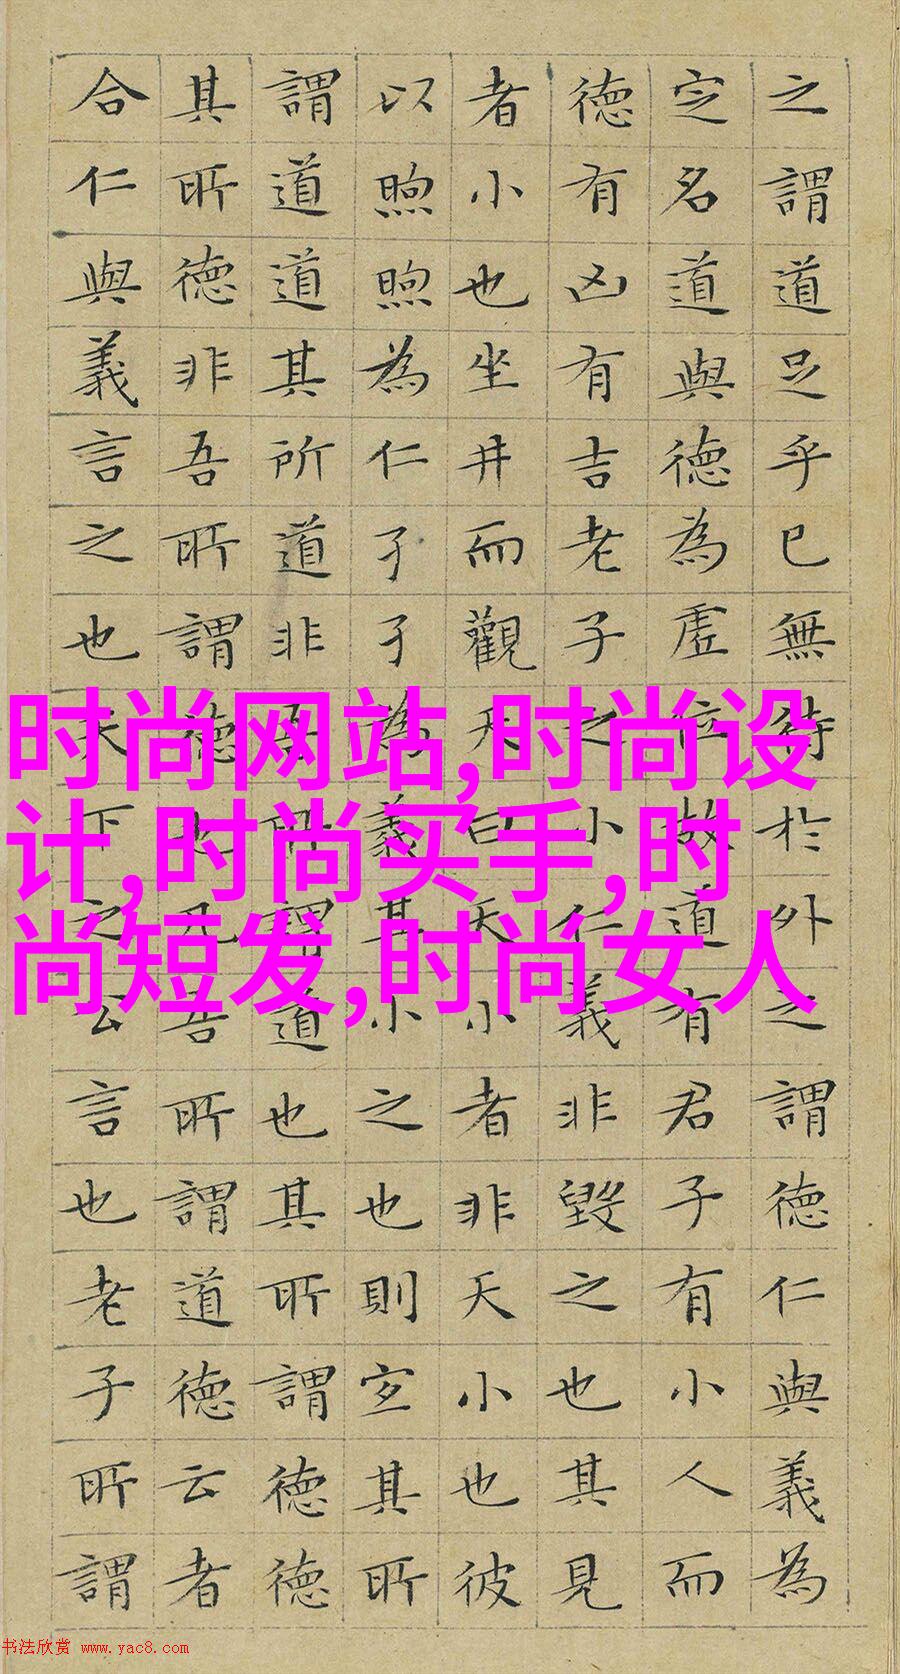 之謂道足乎已無待於外之謂德仁與義為
定名道與德為虛位故道有君子有小人而
德有凶有吉老子之小仁義非毀之也其見
者小也坐井而觀天曰天小者非天小也彼
以煦煦為仁孑孑為義其小之也則宜其所
謂道道其所道非吾所謂道也其所謂德德
其所德非吾所謂德也凡吾所謂道德云者
合仁與義言之也天下之公言也老子所謂
时尚网站,时尚设
计,时尚买手,时
尚短发,时尚女人
书法欣赏 www.yac8.com